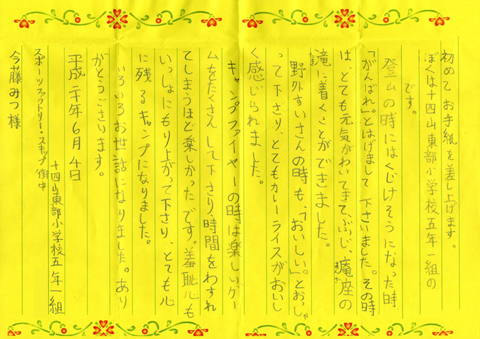 初めてお手紙を差し上げます。
ぼくは十四山東部小学校五年一組の
です。
登山の時にはくじけそうになった時
「がんばれ。」とはげまして下さいました。その時
は、とても元気がわいてきて、ぶじ、魔座の
滝に着くことができました。
野外すいさんの時も、「おいしい。」とおっしゃ
って下さり、とてもカレーライスがおいし
く感じられました。
キャンプファイヤーの時は楽しいゲー
ムをたくさんして下さり、時間をわすれ
てしまうほど楽しかったです。羞恥心も
いっしょにもり上がって下さり、とても心
に残るキャンプになりました。
いろいろお世話になりました。あり
がとうございます。
平成二十年6月4日
十四山東部小学校五年一組
スポーツファクトリー・スキップ 御中
今藤みつ様